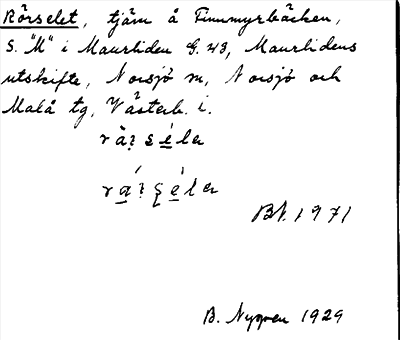 Rörselet, tjärn å Finnmyrbäcken,
S. "M" i Maurliden G. 43, Maurlidens
utskifte, Norsjö sn, Norsjö och
Malå tg, Västerb. l.
Bl. 1971
B. Nygren 1929